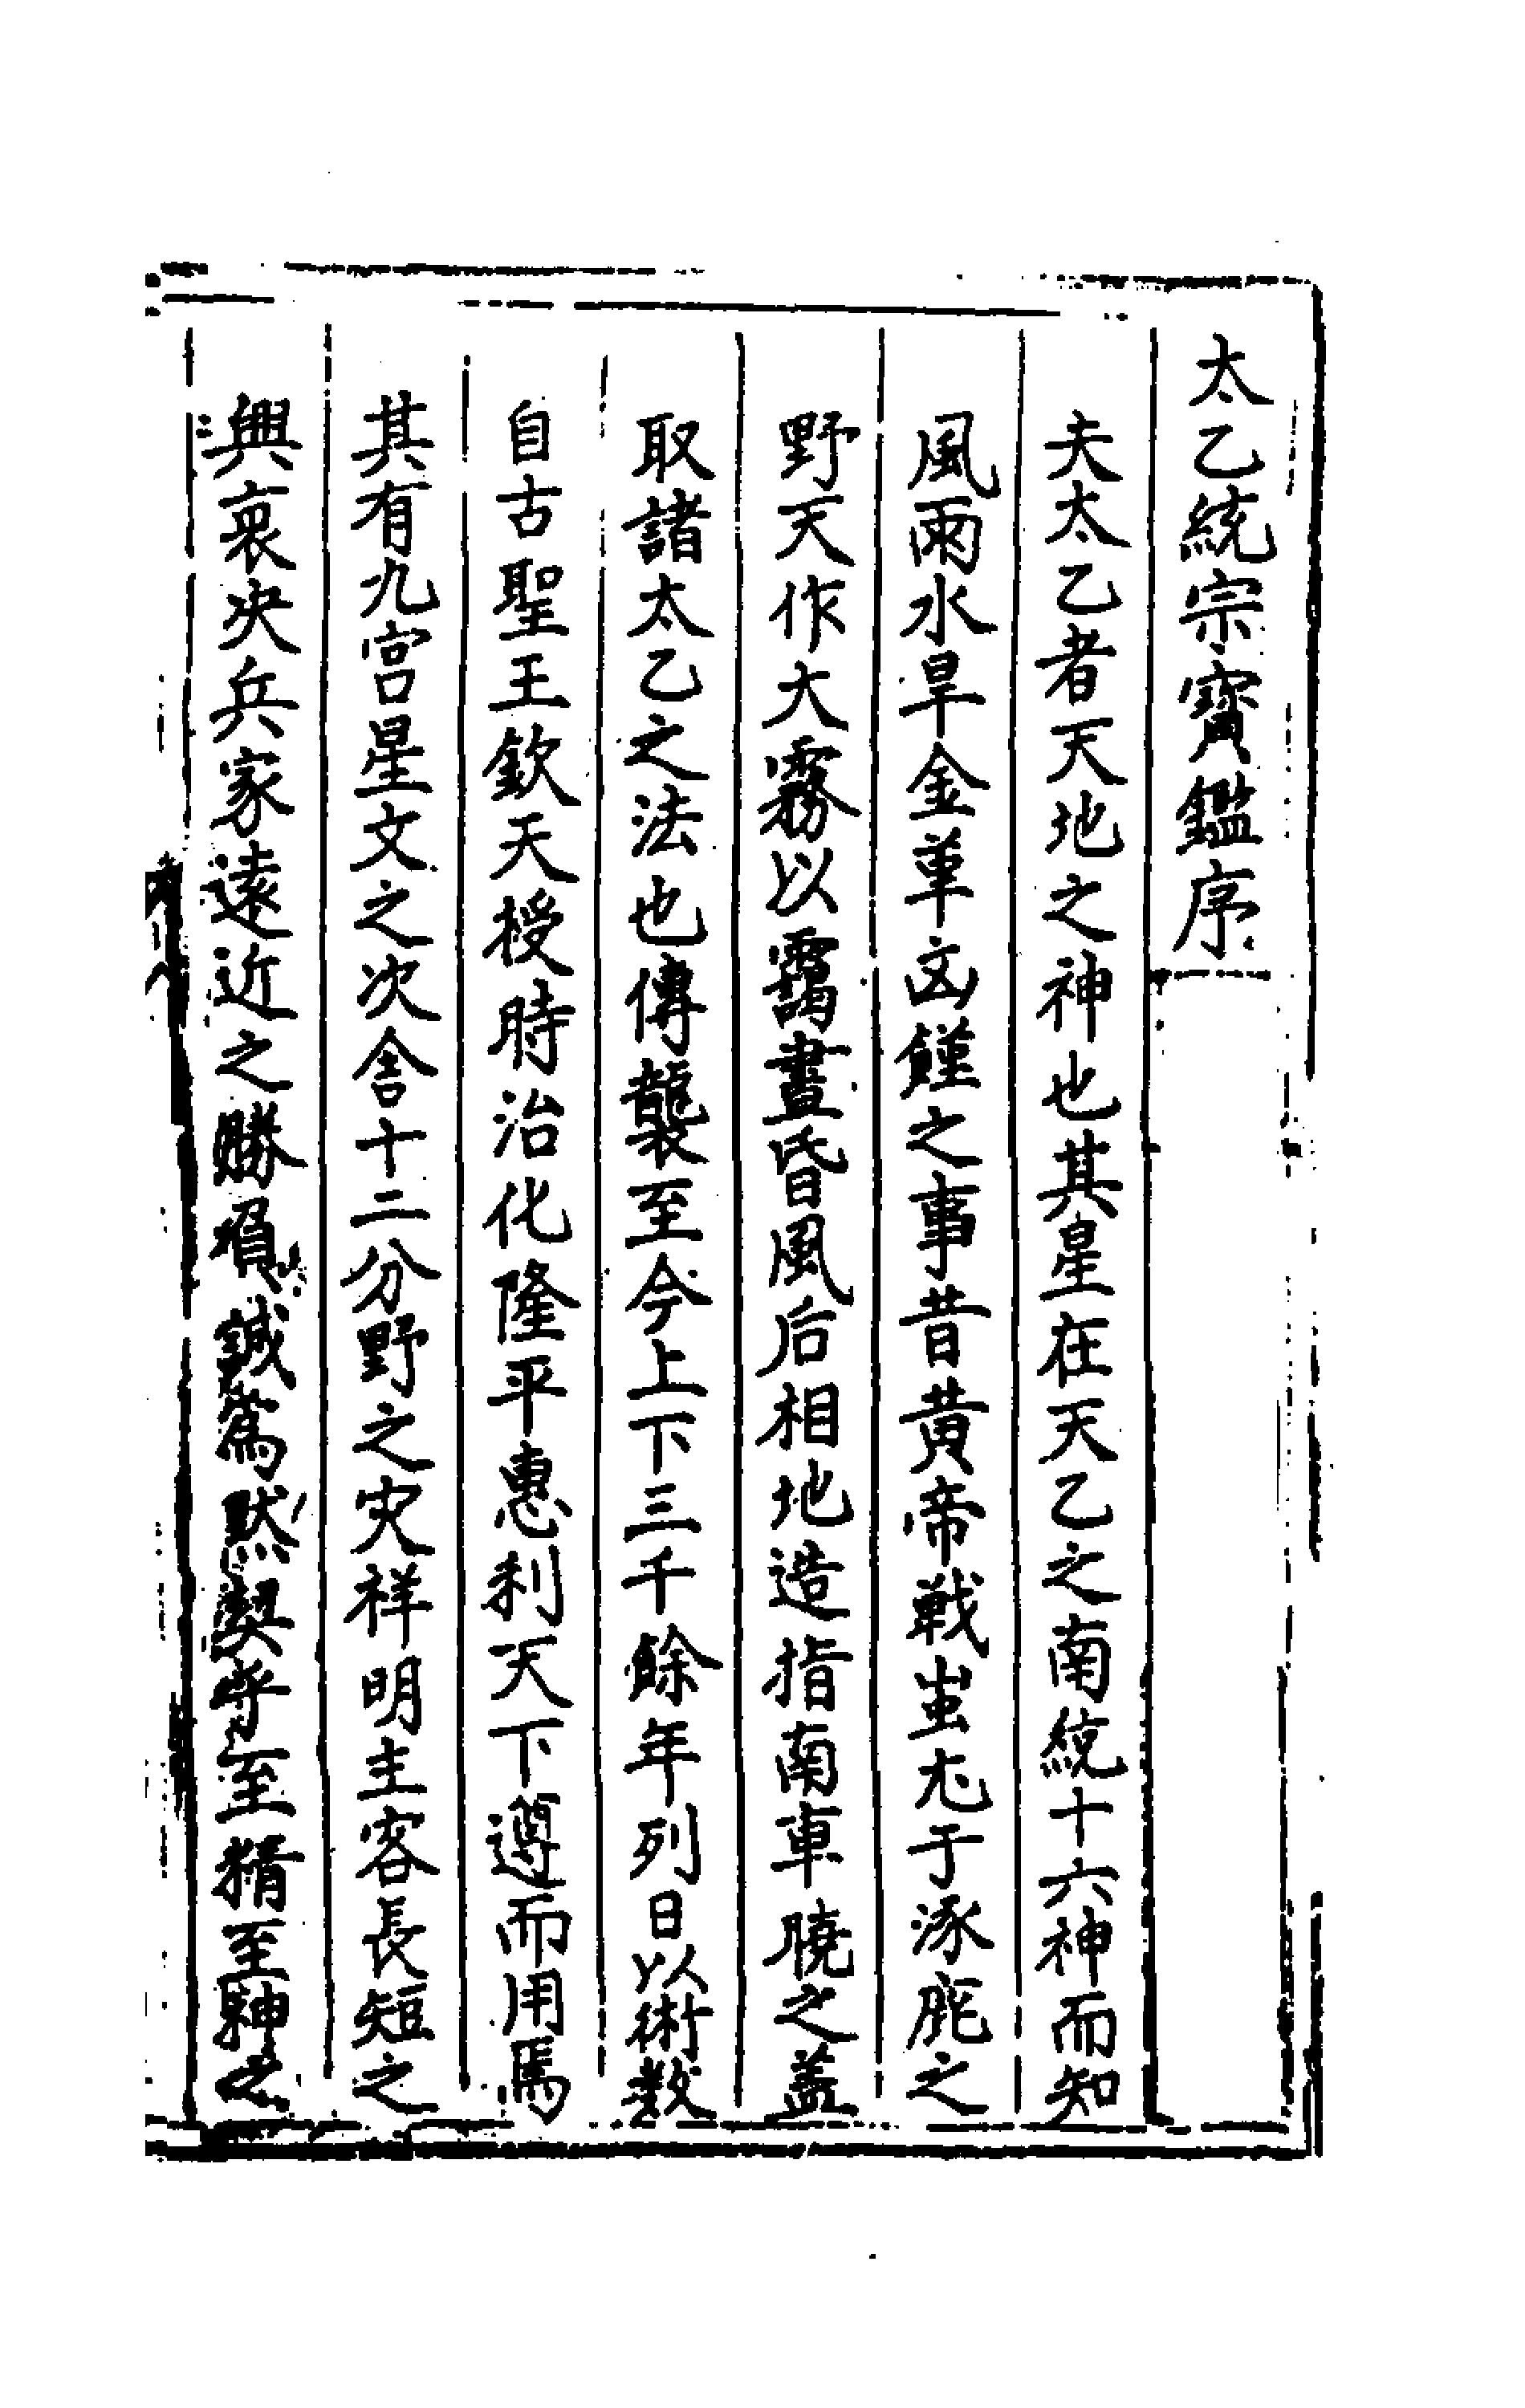 太乙統宗寶鑑序
夫太乙者天地之神也其星在天乙之南統十六神而知
風雨水旱金革凶饉之事昔黄帝戦蚩尤于涿鹿之
野天作大霧以靄晝昏風后相地造指南車曉之盖
取諸太乙之法也傳襲至今上下三千餘年列日以術数
自古聖王欽天授時治化隆平惠利天下遵而用焉
其有九宫星文之次舍十二分野之灾祥明主客長短之
興衰决兵家遠近之勝負誠為默契乎至精至神之